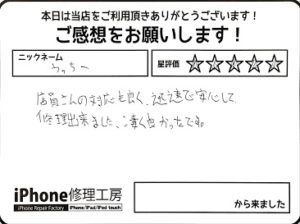 本日は当店をご利用頂きありがとうございます！
ご感想をお願いします！
ニックネーム
うっちー
星評価 ☆☆☆☆☆
店員さんの対応も良く、迅速で安心して
修理出来ました、凄く良かったです。
iPhone修理工房
iPhone Repair Factory iPhone/iPad/iPod touch
から来ました